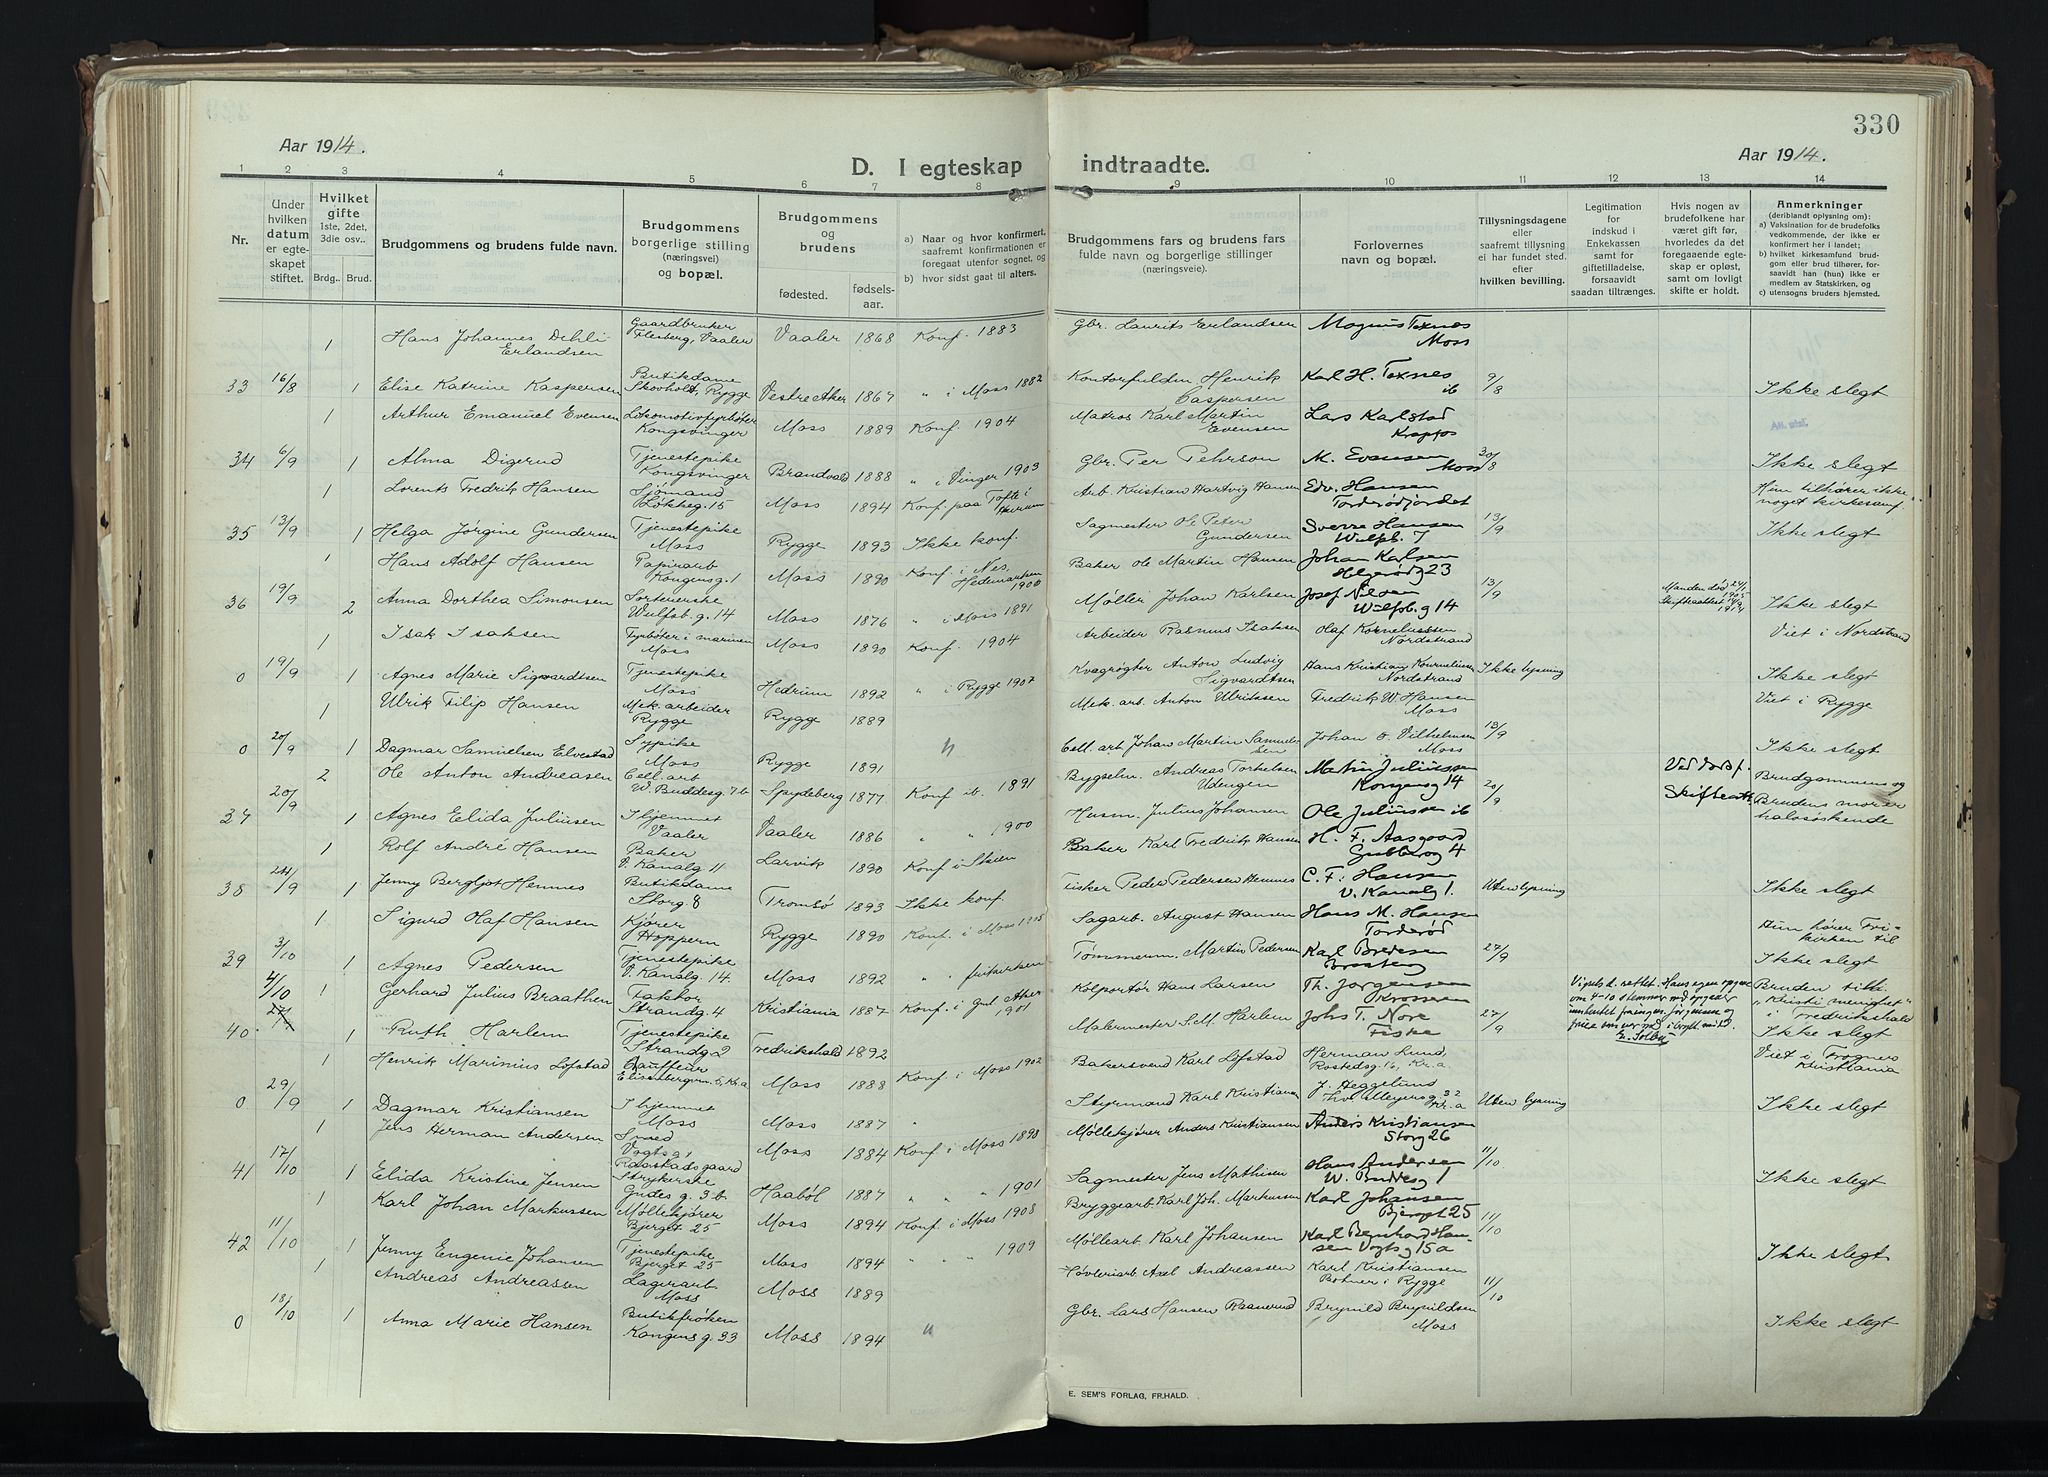 330
Aar 1914.
D. I egteskap indtraadte.
Aar 1914.
1 2 3 4 5 6 7 8 9 10 11 12 13 14
Nr.
Under hvilken datum er egteskapet stiftet.
Hvilket gifte 1ste, 2det, 3die osv..
Brdg.. Brud.
Brudgommens og brudens fulde navn.
Brudgommens borgerlige stilling (næringsvei) og bopæl.
Brudgommens og brudens
fødested.
fødsels-aar.
a) Naar og hvor konfirmert, saafremt konfirmationen er foregaat utenfor sognet, og
b) hvor sidst gaat til alters.
Brudgommens fars og brudens fars fulde navn og borgerlige stillinger (næringsveie).
Forlovernes navn og bopæl.
Tillysningsdagene eller saafremt tillysning ei har fundet sted. efter hvilken bevilling.
Legitimation for indskud i Enkekassen samt for giftetilladelse, forsaavidt saadan tiltrænges.
Hvis nogen av brudefolkene har været gift før, hvorledes da det foregaaende egteskap er opløst, samt om lovligt skifte er holdt.
Anmerkninger
(deriblandt oplysning om):
a) Vaksination for de brudefolks vedkommende, der ikke er konfirmert her i landet;
b) hvilket kirkesamfund brudgom eller brud tilhører, forsaavidt han (hun) ikke er medlem av Statskirken, og
c) utensogns bruders hjemsted.
1 Hans Johannes Dehli Erlandsen Gaardbruker Flesberg, Vaaler Vaaler 1868 Konf. 1883 Gbr. Laurits Erlandsen Magnus Texnes Moss
33 16/8 1 Elise Katrine Kaspersen Butikdame Skovholt, Rygge Vestre Aker 1867 " i Moss 1882 Kontorfuldm. Henrik Caspersen Karl H. Texnes ib 9/8 Ikke slegt
1 Arthur Emanuel Evensen Lokomotivfyrbøter Kongsvinger Moss 1889 Konf. 1904 Matros Karl Martin Evensen Lars Karlstad Krapfos Att. utst.
34 6/9 1 Alma Digerud Tjenestepike Kongsvinger Brandvold 1888 " i Vinger 1903 Gbr. Per Pehrson M. Evensen Moss 30/8 Ikke slegt
1 Lorents Fredrik Hansen Sjømand Løkkeg. 15 Moss 1894 Konf. paa Tofte i Hurum Arb. Kristian Hartvig Hansen Edv. Hansen Torderødjordet Hun tilhører ikke noget kirkesamf.
35 13/9 1 Helga Jørgine Gundersen Tjenestepike Moss Rygge 1893 Ikke konf. Sagmester Ole Peter Gundersen Sverre Hansen Wulfsb. 7 13/9 Ikke slegt
1 Hans Adolf Hansen Papirarb Kongensg. 1 Moss 1890 Konf. i Nes, Hedemarken 1906 Baker Ole Martin Hansen Johan Karlsen Helgerødg 23
36 19/9 2 Anna Dorthea Simonsen Sortererske Wulfsb. g. 14 Moss 1876 " i Moss 1891 Møller Johan Karlsen Josef Nilsen Wulfsb. g 14 13/9 Manden død 24/1 1905 Skifteattest Ikke slegt
1 Isak Isaksen Fyrbøter i marinen Moss Moss 1890 Konf. 1904 Arbeider Rasmus Isaksen Olaf Korneliussen Nordstrand Viet i Nordstrand
0 19/9 1 Agnes Marie Sigvardtsen Tjenestepike Moss Hedrum 1892 " i Rygge 1907 Kvægrøgter Anton Ludvig Sigvardtsen Hans Kristian Korneliussen Nordstrand Ikke lysning Ikke slegt
1 Ulrik Filip Hansen Mek. arbeider Rygge Rygge 1889 Mek. arb. Anton Ulriksen Fredrik W. Hansen Moss Viet i Rygge
0 20/9 1 Dagmar Samuelsen Elvestad Sypike Moss Rygge 1891 " Cell. arb Johan Martin Samuelsen Johan O. Vilhelmsen Moss 13/9 Ikke slegt
2 Ole Anton Andreasen Cell. arb W. Buddesg. 7b Spydeberg 1877 Konf ib. 1891 Bygselm. Andreas Torkelsen Udengen Martin Juliussen Kongensg 14 Ved dødsf. Brudgommens og
37 20/9 1 Agnes Elida Juliusen I hjemmet Vaaler Vaaler 1886 " " 1900 Husm. Julius Johansen Ole Juliussen ib 20/9 Skifteatt. Brudens mor er halvsøskende
1 Rolf André Hansen Baker V. Kanalg 11 Larvik 1890 Konf i Skien Baker Karl Fredrik Hansen H. F. Aasgaard Gubberog 4
38 24/9 1 Jenny Bergljot Hemnes Butikdame Storg. 8 Tromsø 1893 Ikke konf. Fisker Peder Pedersen Hemnes C. F. Hansen V. Kanalg 1. Uten lysning Ikke slegt
1 Sigurd Olaf Hansen Kjører Hoppern Rygge 1890 Konf. i Moss 1905 Sagarb. August Hansen Hans M. Hansen Torderød Hun hører Frikirken til
39 3/10 1 Agnes Pedersen Tjenestepike V. Kanalg. 14. Moss 1892 " " frikirken Tømmerm. Martin Pedersen Karl Bredesen 27/9 Ikke slegt
4/10 1 Gerhard Julius Braathen Faktor Strandg. 4 Kristiania 1887 Konf. i Gml Aker 1901 Kolportør Hans Larsen Th. Jørgensen Krosseren Bruden tilh. "Kristi menighet" i Fredrikshald
40. 1 Ruth Harlem Tjenestepike Strandg 2 Fredrikshald 1892 Malermester S. M. Harlem Johs T. Nore Fiske 27/9 Ikke slegt
1 Henrik Marinius Løfstad Chauffeur Elisenbergvn. 5, Kr.a Moss 1888 Konf. i Moss 1902 Bakersvend Karl Løfstad Herman Lund, Rostedsg. 16, Kr.a. Viet i Frogner Kristiania
0 29/9 1 Dagmar Kristiansen I hjemmet Moss Moss 1887 " Styrmand Karl Kristiansen J. Heggelund Thv. Meyersg. 32 Kr.a Uten lysning Ikke slegt
1 Jens Herman Andersen Smed Vogtsg. Moss 1884 Konf i Moss 1898 Møllekjører Anders Kristiansen Anders Kristiansen Storg 26
41 17/10 1 Elida Kristine Jensen Raastadsgaard Strykerske Gudes g. 3b. Haabøl 1887 " " " 1901 Sagmester Jens Mathisen Hans Andersen W. Buddesg 1 11/10 Ikke slegt
1 Karl Johan Markussen Møllekjører Bjerget 25 Moss 1894 Konf. i Moss 1908 Bryggearb. Karl Joh. Markussen Karl Johansen Bjerget 25
42 11/10 1 Jenny Eugenie Johansen Tjenestepike Bjerget 25 Moss 1894 " " 1909 Møllearb. Karl Johansen Karl Bernhard Hansen Vogtsg 15a 11/10 Ikke slegt
1 Andreas Andreassen Lagerarb. Moss Moss 1889 Høvleriarb Axel Andreassen Karl Kristiansen Botner i Rygge 11/10
0 18/10 1 Anna Marie Hansen Butikfrøken Kongens g. 33 Moss 1894 " Gbr. Lars Hansen Raanerud Brynild Brynildsen Moss Ikke slegt
E. SEM'S FORLAG, FR.HALD.